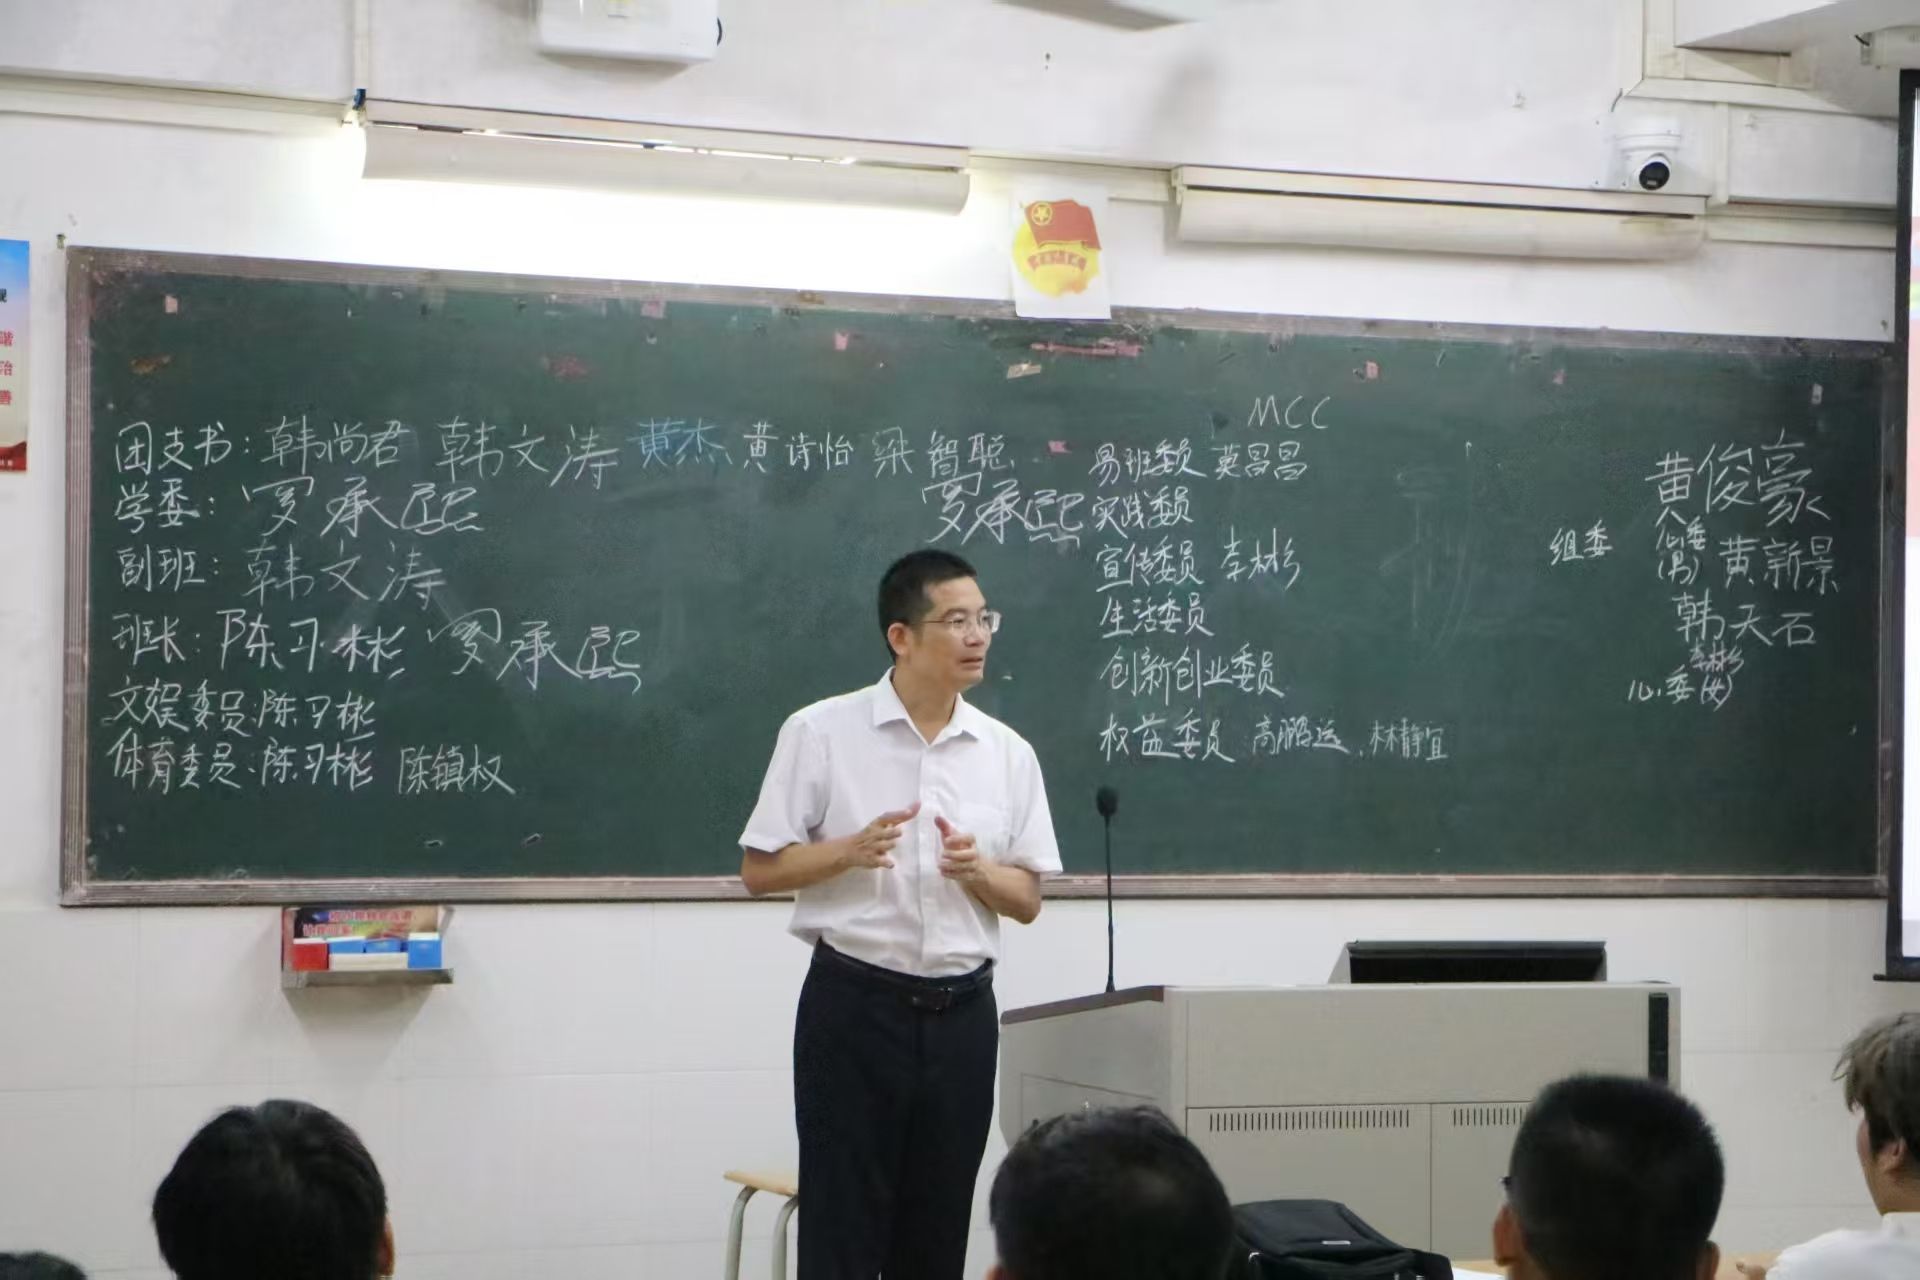 团支书：韩尚君 韩文涛 黄杰 黄诗怡 梁智聪
学委：罗承熙
副班：韩文涛
班长：陈习彬 罗承熙
文娱委员：陈习彬
体育委员：陈习彬 陈镇权
MCC
易班委员 莫昌昌
罗承熙 实践委员
宣传委员 李彬
生活委员
创新创业委员
权益委员 高鹏运、林静宜
黄俊豪
组委 心委(男) 黄新景
韩天石
李彬
心委(女)
谐
治
善